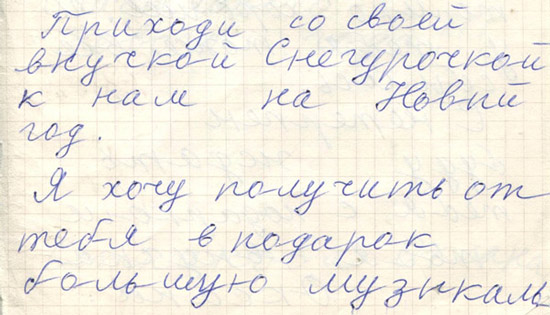 Приходи со своей
внучкой Снегурочкой
к нам на Новый
год.
Я хочу получить от
тебя в подарок
большую музыкаль